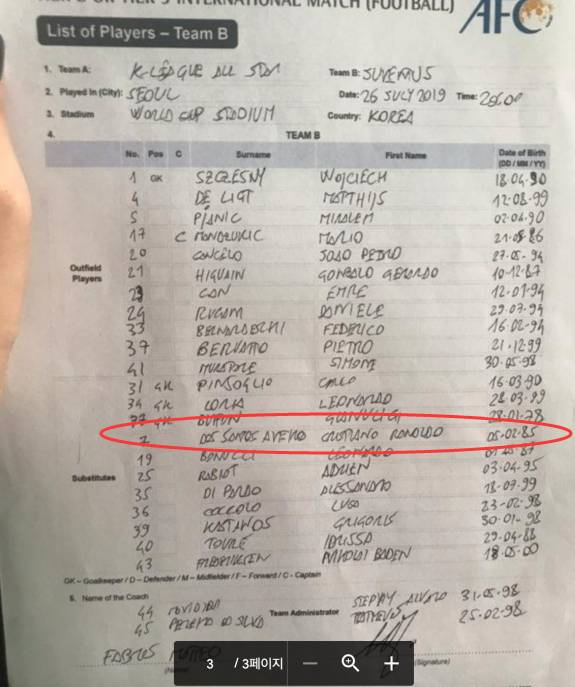 INTERNATIONAL MATCH (FOOTBALL)
AFC
List of Players – Team B
1. Team A: K-LEAGUE ALL STAR Team B: JUVENTUS
2. Played in (City): SEOUL Date: 26 JULY 2019 Time: 20:00
3. Stadium WORLD CUP STADIUM Country: KOREA
4. TEAM B
No. Pos C Surname First Name Date of Birth (DD / MM / YY)
1 GK SZCZESNY WOJCIECH 18.04.90
4 DE LIGT MATTHIJS 12.08.99
5 PJANIC MIRALEM 02.04.90
17 C MANDZUKIC MARIO 21.05.86
20 CANCELO JOAO PEDRO 27-05-94
Outfield Players
21 HIGUAIN GONZALO GERARDO 10-12-87
23 CAN EMRE 12.01.94
24 RUGANI DANIELE 29.07.94
33 BERNARDESCHI FEDERICO 16.02-94
37 BERUATTO PIETRO 21.12.99
41 MURATORE SIMONE 30.05.98
31 GK PINSOGLIO CARLO 16.03.90
34 GK LORIA LEONARDO 28.03.99
77 GK BUFFON GIANLUIGI 28.01.78
7 DOS SANTOS AVEIRO CRISTIANO RONALDO 05.02.85
19 BONUCCI LEONARDO
Substitutes
25 RABIOT ADRIEN 03.04.95
35 DI PARDO ALESSANDRO 18.07.99
36 COCCOLO LUCA 23-02-98
39 KASTANOS GRIGORIS 30-01-98
40 TOURÉ IDRISSA 29.04.98
43 FREDERIKSEN NIKOLAI BADEN 18.05.00
GK – Goalkeeper / D – Defender / M – Midfielder / F – Forward / C - Captain
5. Name of the Coach
44 STEPHY 31.05.98
Team Administrator
45 MATHEUS 25.02.98
3 / 3페이지
(Signature)